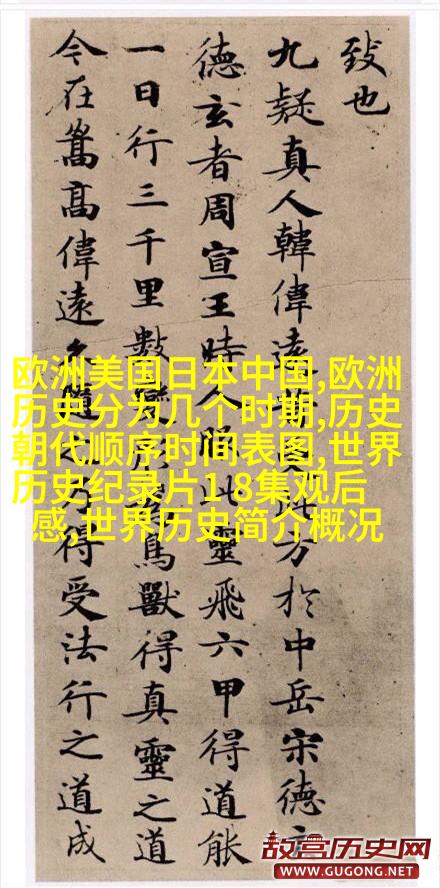 致也
九疑真人韓偉遠昔受此方於中岳宋德玄
德玄者周宣王時人服此靈飛六甲得道能
一日行三千里數變形為鳥獸得真靈之道
今在嵩高偉遠久隨之乃得受法行之道成
欧洲美国日本中国,欧洲
历史分为几个时期,历史
朝代顺序时间表图,世界
历史纪录片1-8集观后
感,世界历史简介概况
故宫历史网
WWW.GUGONG.NET